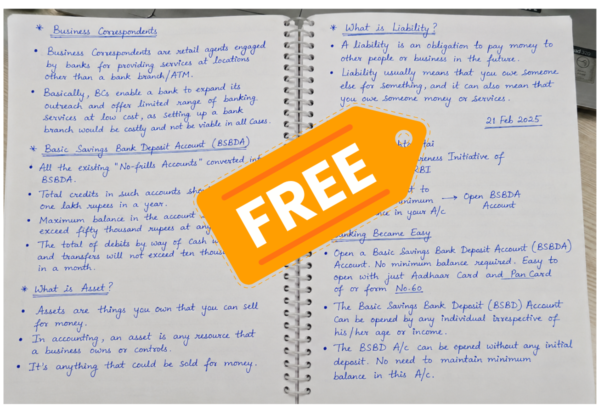 * Business Correspondents
• Business Correspondents are retail agents engaged
by banks for providing services at locations
other than a bank branch/ATM.
• Basically, BCs enable a bank to expand its
outreach and offer limited range of banking
services at low cost, as setting up a bank
branch would be costly and not be viable in all cases.
* Basic Savings Bank Deposit Account (BSBDA)
• All the existing "No-frills Accounts" converted into
BSBDA.
• Total credits in such accounts
one lakh rupees in a year.
• Maximum balance in the account
exceed fifty thousand rupees at any
• The total of debits by way of cash
and transfers will not exceed ten
in a month.
* What is Asset?
• Assets are things you own that you can sell
for money.
• In accounting, an asset is any resource that
a business owns or controls.
• It's anything that could be sold for money.
* What is Liability?
• A liability is an obligation to pay money to
other people or business in the future.
• Liability usually means that you owe someone
else for something, and it can also mean that
you owe someone money or services.
21 Feb 2025
Initiative of
RBI
to
→ Open BSBDA
in your A/c Account
Banking Became Easy
• Open a Basic Savings Bank Deposit Account (BSBDA)
Account. No minimum balance required. Easy to
open with just Aadhaar Card and Pan Card
of or form No-60
• The Basic Savings Bank Deposit (BSBD) Account
can be opened by any individual irrespective of
his/her age or income.
• The BSBD A/c can be opened without any initial
deposit. No need to maintain minimum
balance in this A/c.
FREE